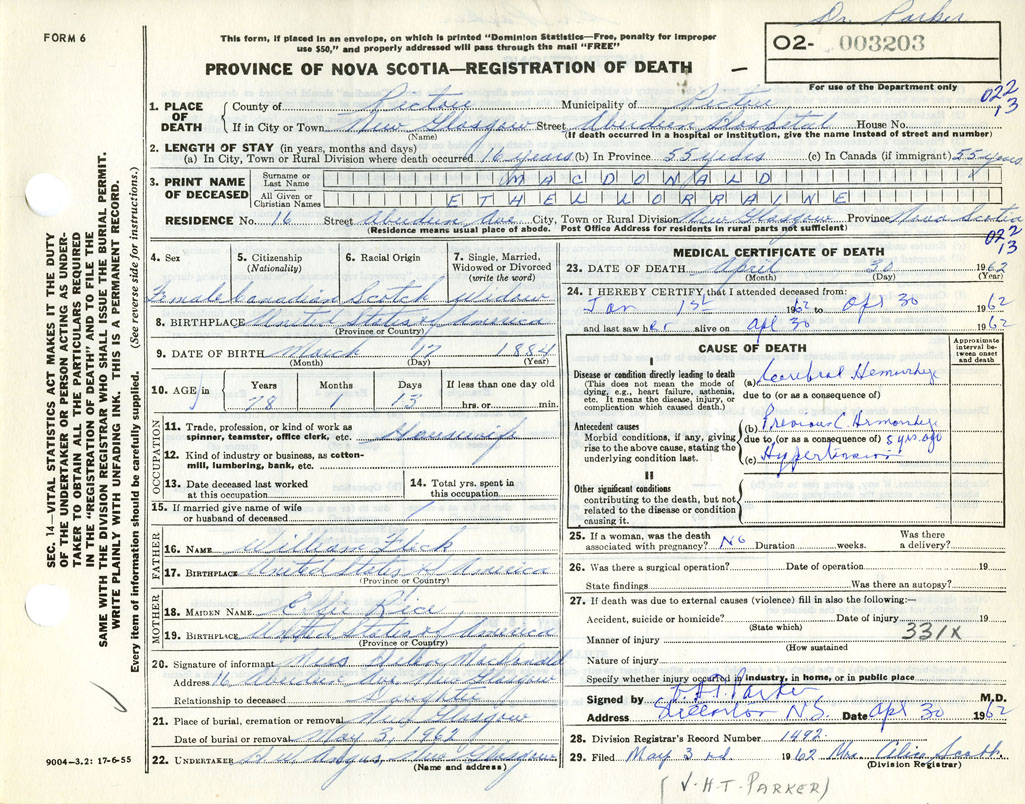 Dr. Parker
FORM 6
This form, if placed in an envelope, on which is printed "Dominion Statistics—Free, penalty for improper
use $50," and properly addressed will pass through the mail "FREE"
02- 003203
PROVINCE OF NOVA SCOTIA—REGISTRATION OF DEATH
For use of the Department only
022
13
1. PLACE OF DEATH
County of Pictou Municipality of Pictou
If in City or Town New Glasgow Street Aberdeen Hospital House No.
(Name) (If death occurred in a hospital or institution, give the name instead of street and number)
2. LENGTH OF STAY (in years, months and days)
(a) In City, Town or Rural Division where death occurred 16 years (b) In Province 55 years (c) In Canada (if immigrant) 55 years
3. PRINT NAME OF DECEASED
Surname or Last Name MACDONALD
All Given or Christian Names ETHEL LORRAINE
RESIDENCE No. 16 Street Aberdeen Ave City, Town or Rural Division New Glasgow Province Nova Scotia
(Residence means usual place of abode. Post Office Address for residents in rural parts not sufficient)
022
13
4. Sex
Female
5. Citizenship (Nationality)
Canadian
6. Racial Origin
Scotch
7. Single, Married, Widowed or Divorced (write the word)
Widow
8. BIRTHPLACE United States of America
(Province or Country)
9. DATE OF BIRTH March 17 1884
(Month) (Day) (Year)
10. AGE in Years Months Days If less than one day old
78 1 13 hrs. or min.
OCCUPATION
11. Trade, profession, or kind of work as spinner, teamster, office clerk, etc. Housewife
12. Kind of industry or business, as cotton-mill, lumbering, bank, etc.
13. Date deceased last worked at this occupation
14. Total yrs. spent in this occupation
15. If married give name of wife or husband of deceased
FATHER
16. NAME William Flick
17. BIRTHPLACE United States of America
(Province or Country)
MOTHER
18. MAIDEN NAME Rice
19. BIRTHPLACE United States of America
(Province or Country)
20. Signature of informant Miss MacDonald
Address 16 Aberdeen Ave New Glasgow
Relationship to deceased Daughter
21. Place of burial, cremation or removal New Glasgow
Date of burial or removal May 3, 1962
22. UNDERTAKER Angus, New Glasgow
(Name and address)
MEDICAL CERTIFICATE OF DEATH
23. DATE OF DEATH April 30 1962
(Month) (Day) (Year)
24. I HEREBY CERTIFY, that I attended deceased from:
Jan 1st 1962 to Apl 30 1962
and last saw her alive on apl 30 1962
CAUSE OF DEATH
Approximate interval between onset and death
I
Disease or condition directly leading to death
(This does not mean the mode of dying, e.g., heart failure, asthenia, etc. It means the disease, injury, or complication which caused death.)
(a) Cerebral Hemorrhage
due to (or as a consequence of)
Antecedent causes
Morbid conditions, if any, giving rise to the above cause, stating the underlying condition last.
(b) Previous C. Hemorrhage
due to (or as a consequence of) 5 yrs. ago
(c) Hypertension
II
Other significant conditions
contributing to the death, but not related to the disease or condition causing it.
25. If a woman, was the death associated with pregnancy? No Duration weeks. Was there a delivery?
26. Was there a surgical operation? Date of operation 19
State findings Was there an autopsy?
27. If death was due to external causes (violence) fill in also the following:—
Accident, suicide or homicide? Date of injury 19
(State which)
331X
Manner of injury
(How sustained
Nature of injury
Specify whether injury occurred in industry, in home, or in public place
Signed by J H T Parker M.D.
Address Stellarton N.S. Date Apl 30 1962
28. Division Registrar's Record Number 1492
29. Filed May 3rd 1962 Mrs. Alice Scott
(Division Registrar)
(J.H.T. PARKER)
SEC. 14—VITAL STATISTICS ACT MAKES IT THE DUTY
OF THE UNDERTAKER OR PERSON ACTING AS UNDER-
TAKER TO OBTAIN ALL THE PARTICULARS REQUIRED
IN THE "REGISTRATION OF DEATH" AND TO FILE THE
SAME WITH THE DIVISION REGISTRAR WHO SHALL ISSUE THE BURIAL PERMIT.
WRITE PLAINLY WITH UNFADING INK. THIS IS A PERMANENT RECORD.
Every item of information should be carefully supplied. (See reverse side for instructions.)
9004—3.2: 17-6-55